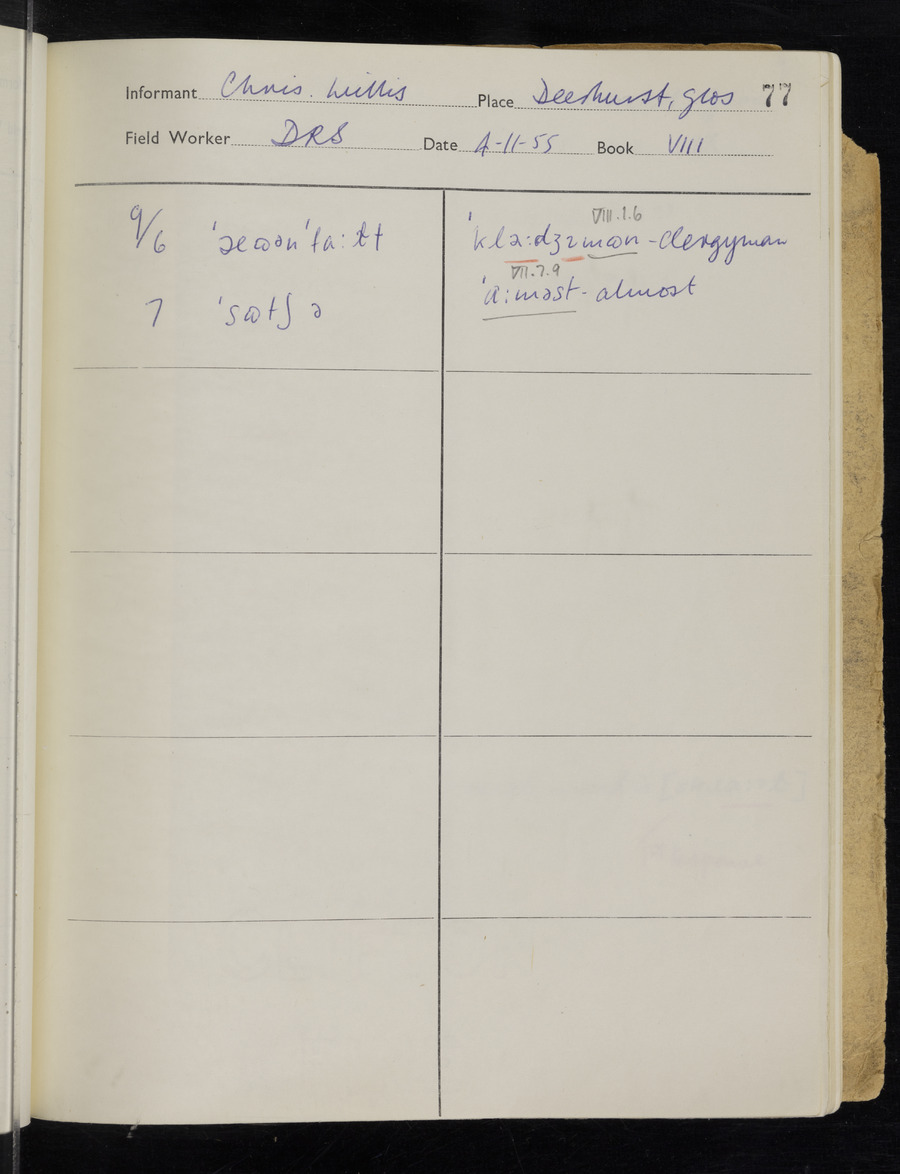 Informant Chris. Willis Place Deerhurst, Glos 77
Field Worker DRS Date 4-11-55 Book VIII
9/6
VIII.1.6
ˈklə:dʒɪmən - clergyman
VII.7.9
ˈɑ:məst - almost
7 ˈsɷtʃ ə